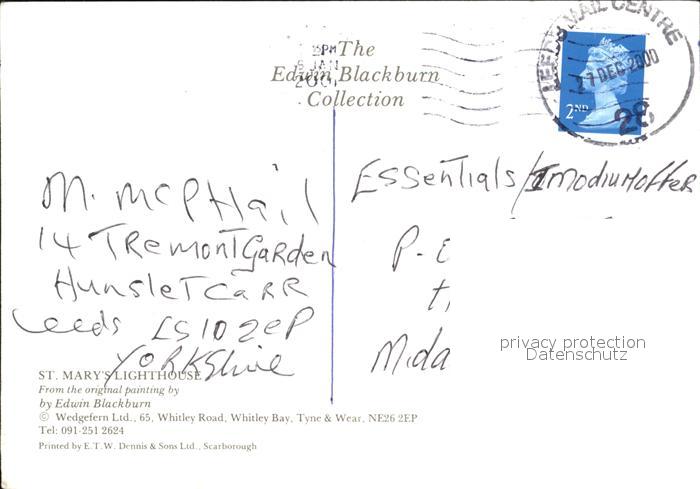 The
Edwin Blackburn
Collection
15PM
5 JAN
2001
LEEDS MAIL CENTRE
27 DEC 2000
28
2ND
M. McPHail
14 TRemontGarden
HunsleT CaRR
Leeds LS10 2eP
YoRKShire
ESSenTials/ImodiuMoffer
P-E
Mida
privacy protection
Datenschutz
ST. MARY'S LIGHTHOUSE
From the original painting by
by Edwin Blackburn
© Wedgefern Ltd., 65, Whitley Road, Whitley Bay, Tyne & Wear, NE26 2EP
Tel: 091-251 2624
Printed by E.T.W. Dennis & Sons Ltd., Scarborough